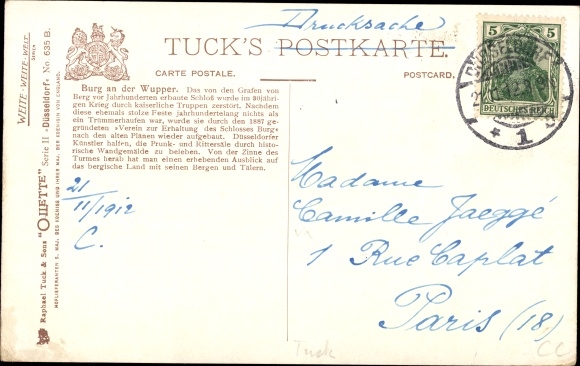 Drucksache
TUCK'S POSTKARTE.
CARTE POSTALE.
POSTCARD.
Burg an der Wupper. Das von den Grafen von
Berg vor Jahrhunderten erbaute Schloß wurde im 30jähri-
gen Krieg durch kaiserliche Truppen zerstört. Nachdem
diese ehemals stolze Feste jahrhundertelang nichts als
ein Trümmerhaufen war, wurde sie durch den 1887 ge-
gründeten »Verein zur Erhaltung des Schlosses Burg«
nach den alten Plänen wieder aufgebaut. Düsseldorfer
Künstler halfen, die Prunk- und Rittersäle durch histo-
rische Wandgemälde zu beleben. Von der Zinne des
Turmes herab hat man einen erhebenden Ausblick auf
das bergische Land mit seinen Bergen und Tälern.
21
11/1912
C.
Madame
Camille Jaeggé
1 Rue Caplat
Paris (18)
5 5
DEUTSCHES REICH
* 1
Raphael Tuck & Sons "OILETTE" Serie II »Düsseldorf« No. 635 B.
WEITE-WEITE-WELT
SERIEN
Tuck
CC